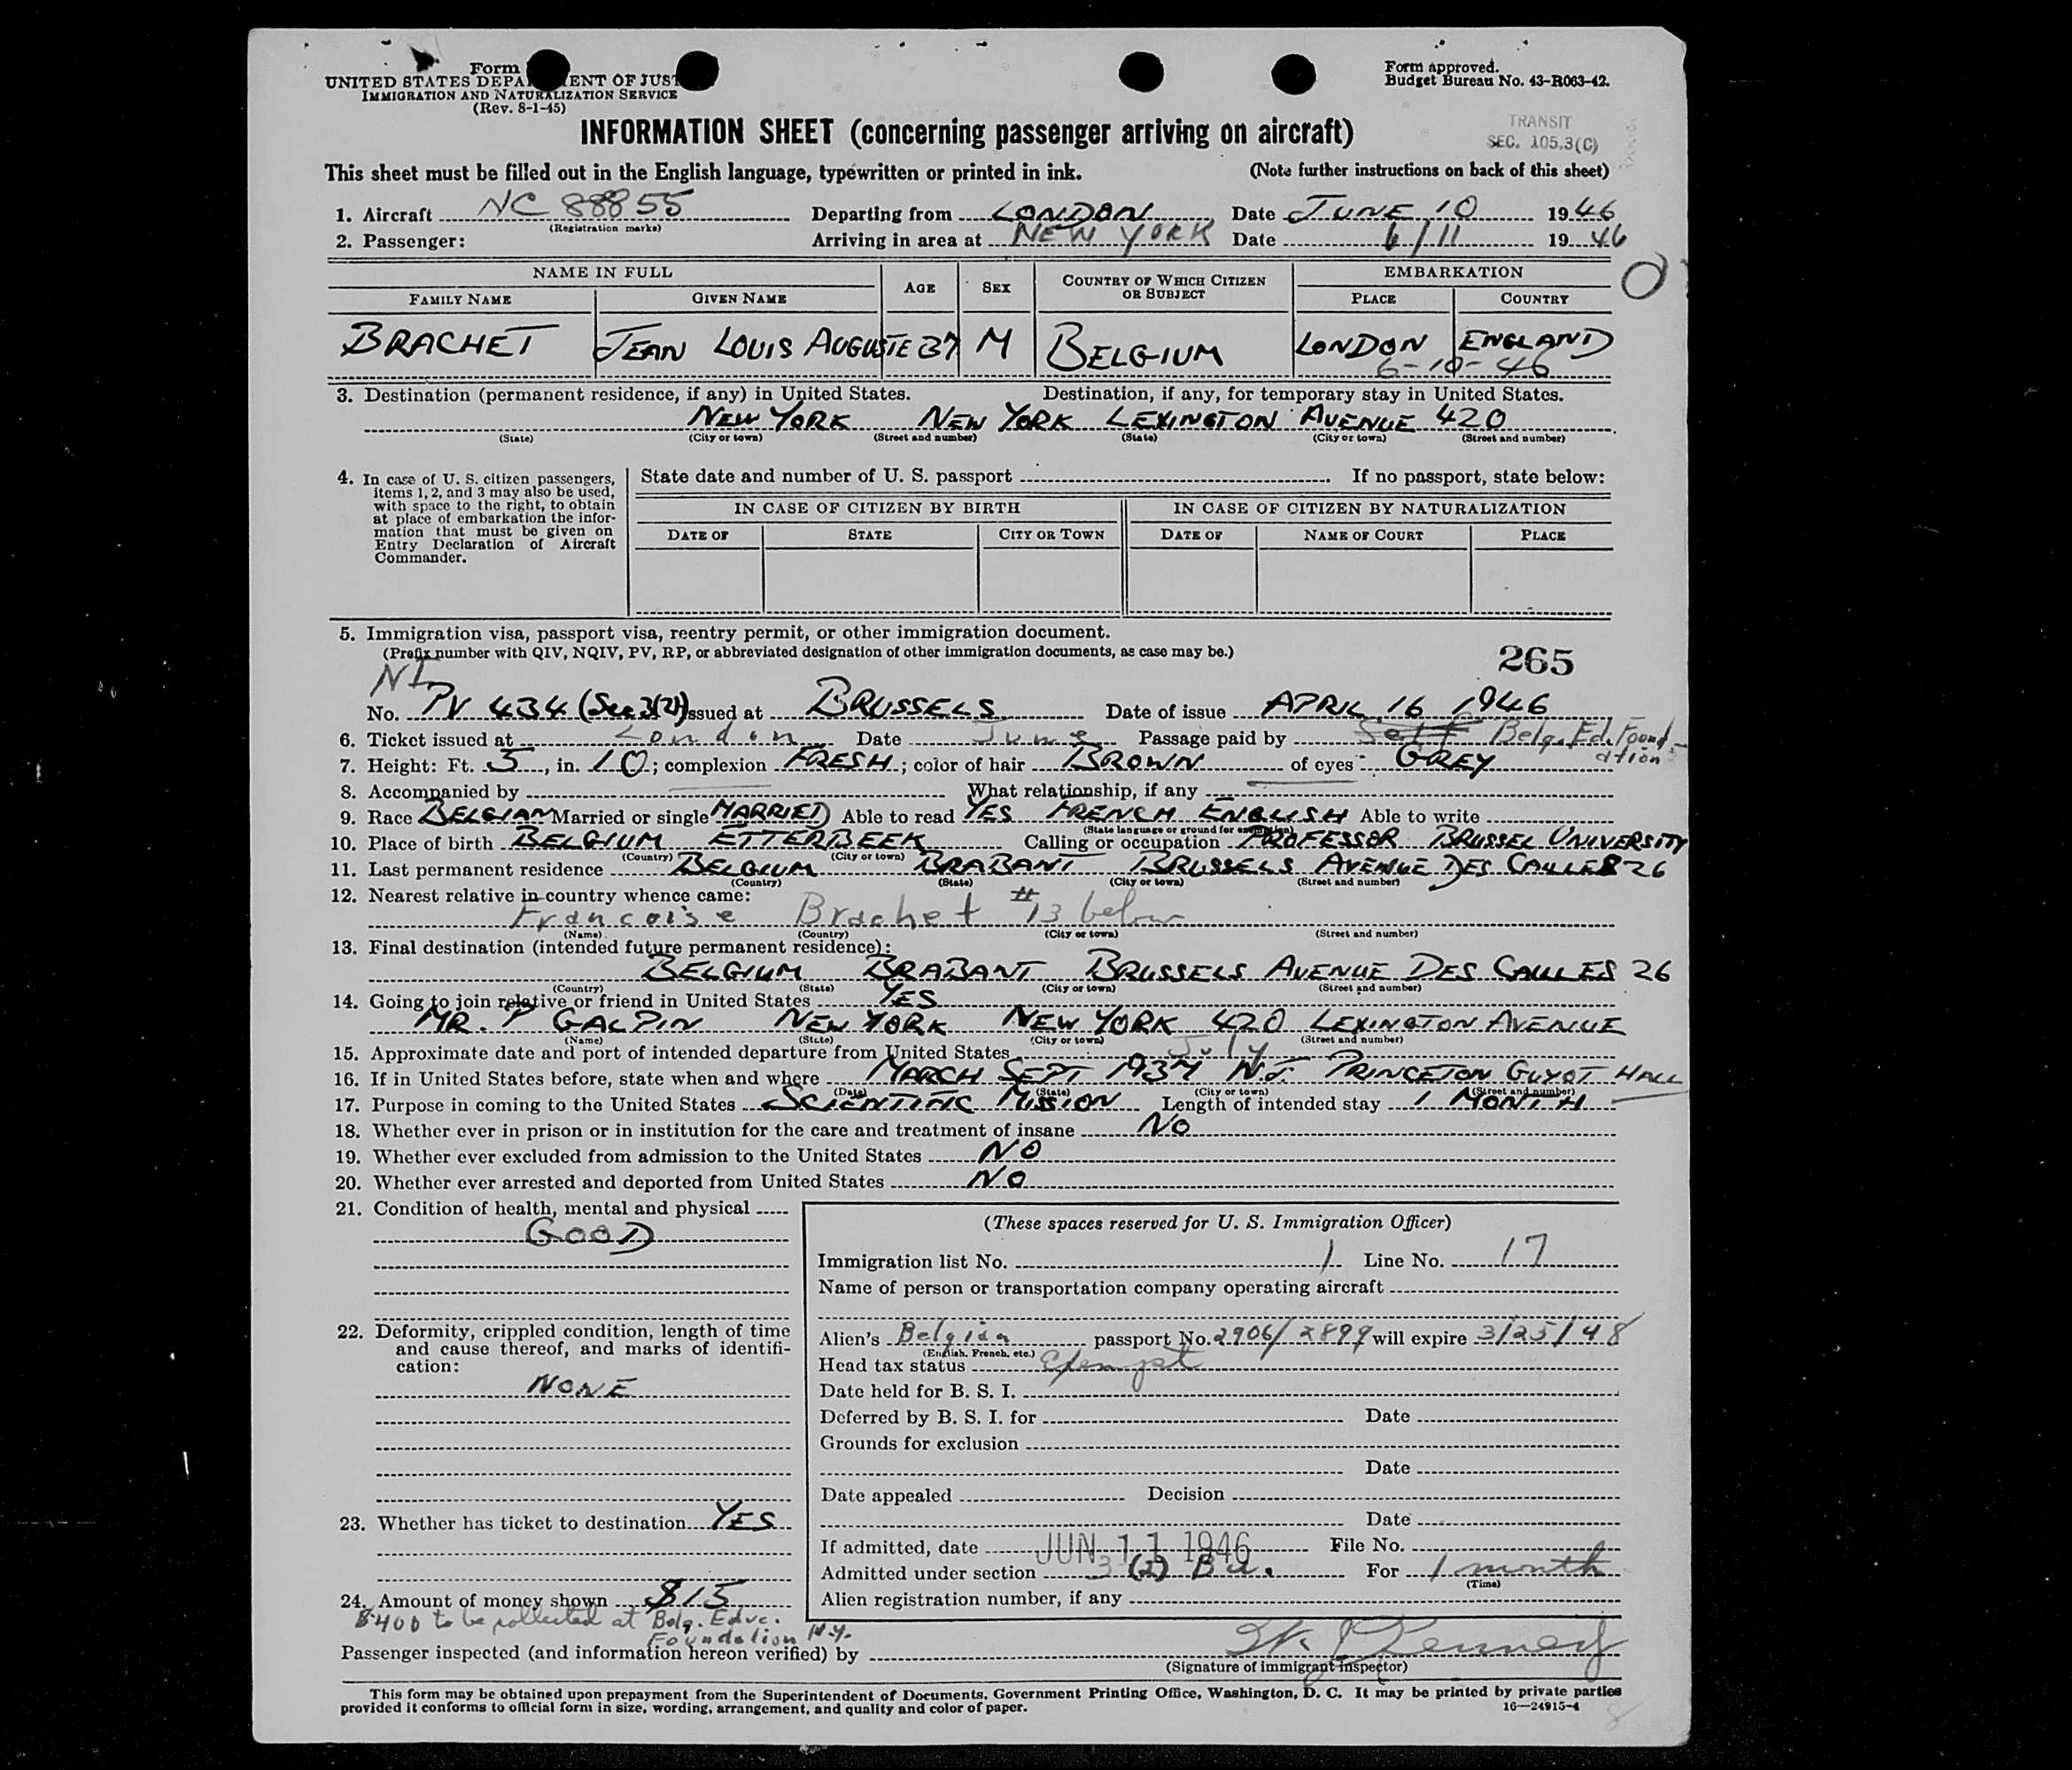 Form
Form approved.
UNITED STATES DEPA ENT OF JUST
Budget Bureau No. 43-R063-42.
IMMIGRATION AND NATURALIZATION SERVICE
(Rev. 8-1-45)
TRANSIT
SEC. 105.3(C)
INFORMATION SHEET (concerning passenger arriving on aircraft)
This sheet must be filled out in the English language, typewritten or printed in ink. (Note further instructions on back of this sheet)
1. Aircraft NC 88855 Departing from LONDON Date JUNE 10 1946
(Registration marks)
2. Passenger: Arriving in area at NEW YORK Date 6/11 1946
NAME IN FULL AGE SEX COUNTRY OF WHICH CITIZEN OR SUBJECT EMBARKATION
FAMILY NAME GIVEN NAME PLACE COUNTRY
BRACHET JEAN LOUIS AUGUSTE 37 M BELGIUM LONDON ENGLAND
6-10-46
3. Destination (permanent residence, if any) in United States. Destination, if any, for temporary stay in United States.
NEW YORK NEW YORK LEXINGTON AVENUE 420
(State) (City or town) (Street and number) (State) (City or town) (Street and number)
4. In case of U. S. citizen passengers, items 1, 2, and 3 may also be used, with space to the right, to obtain at place of embarkation the information that must be given on Entry Declaration of Aircraft Commander.
State date and number of U. S. passport If no passport, state below:
IN CASE OF CITIZEN BY BIRTH IN CASE OF CITIZEN BY NATURALIZATION
DATE OF STATE CITY OR TOWN DATE OF NAME OF COURT PLACE
5. Immigration visa, passport visa, reentry permit, or other immigration document.
(Prefix number with QIV, NQIV, PV, RP, or abbreviated designation of other immigration documents, as case may be.)
265
NI
No. PV 434 (Sec 3(2)) issued at BRUSSELS Date of issue APRIL 16 1946
6. Ticket issued at London Date June Passage paid by Self Belg. Ed. Foundation
7. Height: Ft. 5, in. 10; complexion FRESH; color of hair BROWN of eyes GREY
8. Accompanied by What relationship, if any
9. Race BELGIAN Married or single MARRIED Able to read YES FRENCH ENGLISH Able to write
(State language or ground for exemption)
10. Place of birth BELGIUM ETTERBEEK Calling or occupation PROFESSOR BRUSSEL UNIVERSITY
(Country) (City or town)
11. Last permanent residence BELGIUM BRABANT BRUSSELS AVENUE DES CAILLES 26
(Country) (State) (City or town) (Street and number)
12. Nearest relative in country whence came:
Francoise Brachet #13 below
(Name) (Country) (City or town) (Street and number)
13. Final destination (intended future permanent residence):
BELGIUM BRABANT BRUSSELS AVENUE DES CAILLES 26
(Country) (State) (City or town) (Street and number)
14. Going to join relative or friend in United States YES
MR. P GALPIN NEW YORK NEW YORK 420 LEXINGTON AVENUE
(Name) (State) (City or town) (Street and number)
15. Approximate date and port of intended departure from United States July
16. If in United States before, state when and where MARCH SEPT 1937 N.J. PRINCETON GUYOT HALL
(Date) (State) (City or town) (Street and number)
17. Purpose in coming to the United States SCIENTIFIC MISSION Length of intended stay 1 MONTH
18. Whether ever in prison or in institution for the care and treatment of insane NO
19. Whether ever excluded from admission to the United States NO
20. Whether ever arrested and deported from United States NO
21. Condition of health, mental and physical
GOOD
22. Deformity, crippled condition, length of time and cause thereof, and marks of identification:
NONE
23. Whether has ticket to destination YES
24. Amount of money shown $15
$400 to be collected at Belg. Educ.
Foundation N.Y.
(These spaces reserved for U. S. Immigration Officer)
Immigration list No. 1 Line No. 17
Name of person or transportation company operating aircraft
Alien's Belgian passport No. 2906/2899 will expire 3/25/48
(English, French, etc.)
Head tax status Exempt
Date held for B. S. I.
Deferred by B. S. I. for Date
Grounds for exclusion
Date
Date appealed Decision
Date
If admitted, date JUN 11 1946 File No.
Admitted under section 3 (2) Bu. For 1 month
(Time)
Alien registration number, if any
Passenger inspected (and information hereon verified) by
(Signature of immigrant inspector)
This form may be obtained upon prepayment from the Superintendent of Documents, Government Printing Office, Washington, D. C. It may be printed by private parties
provided it conforms to official form in size, wording, arrangement, and quality and color of paper.
16—24915-4